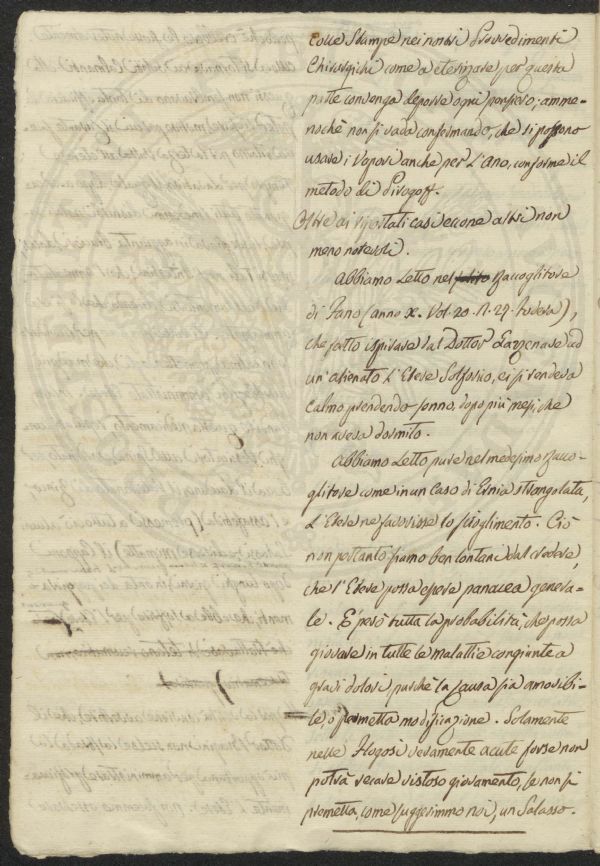 colle Stampe nei nostri Provvedimenti
Chirurgichi come a eterizare per questa
parte convenga deporre ogni pensiero; amme-
nochè non si vada confermando, che si possono
usare i Vapori anche per L'Ano, conforme il
metodo di Pirogoff.
Oltre ai riportati casi eccone altri non
meno notevoli.
Abbiamo Letto nel Raccoglitore
di Fano (anno X. Vol. 20. N. 27.
che fatto ispirare dal Dottor ad
un'alienato L'Etere Solforico, ei si rendeva
calmo prendendo sonno, dopo più mesi che
non aveva dormito.
Abbiamo Letto pure nel medesimo Racco-
glitore come in un Caso di Ernia strangolata,
L'Etere ne favorisse lo scioglimento. Ciò
non pertanto siamo ben lontani dal credere,
che l'Etere possa essere panacea genera-
le. È però tutta la probabilità, che possa
giovare in tutte le malattie congiunte a
gravi dolori, purchè la causa sia amovibi-
le, o permetta modificazione. Solamente
nelle Flogosi veramente acute forse non
potrà recare vistoso giovamento, se non si
premetta, come suggerimmo noi, un Salasso.